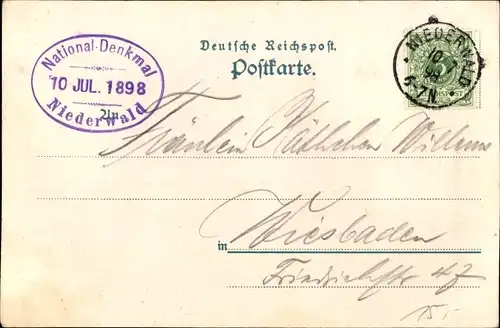 National-Denkmal
10 JUL. 1898
Niederwald
Deutsche Reichspost.
Postkarte.
NIEDERWALD
10
98
6-7N
Fräulein Käthchen Willems
in Wiesbaden
Friedrichstr 47
15.-